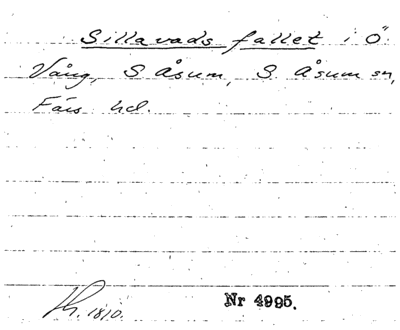 Sillavads fallet i Ö
Vång, S Åsum, S. Åsum sn,
Färs hd.
1810.
Nr 4995.